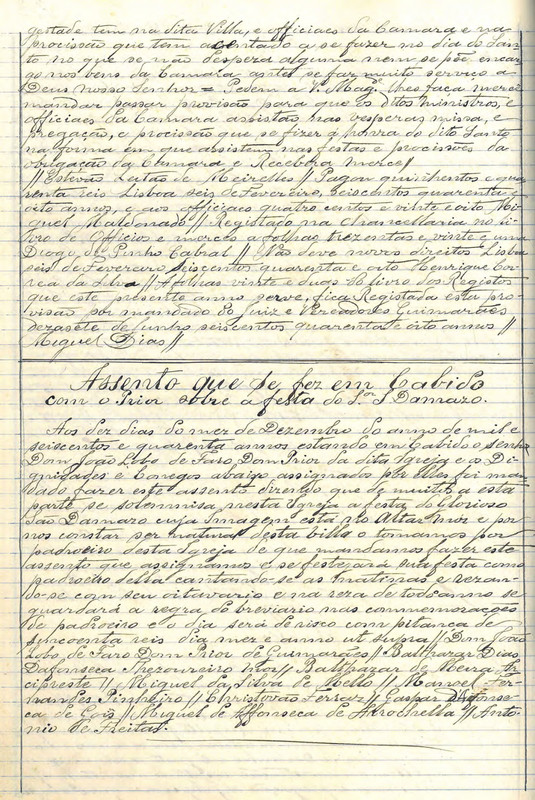 gestade tem na dita Villa, e officiaes da Camara e na
procissão que tem acentado a se fazer no dia do San-
to no que se não despera alguma nem se põe encar
go nos bens da Camara antes se faz muito serviço a
Deus Nosso Senhor = Pedem a V. Mag.e lhes faça mercê
mandar passar provisão para que os ditos ministros, e
officiaes da Camara assistão nas vesperas missa, e
pregação, e procissão que se fizer á honra do dito Santo
na forma em que assistem nas festas e procissões da
obrigação da Camara e Recebera Merce //
// Estevão Leitão de Meirelles // Pagou quinhentos e qua
renta reis Lisboa seis de Fevereiro, seiscentos quarenta e
oito annos, e aos officiaes quatro centos e vinte e oito Mi-
guel Maldonado // Registado na Chancellaria no li-
vro de Officios e mercês a folhas trezentas e vinte e uma
Diogo de Pinho Cabral // Não deve novos direitos Lisboa
seis de Fevereiro seiscentos quarenta e oito Henrique Cor-
rea da Silva // A folhas vinte e duas do livro dos Registos
que este presente anno serve, fica Registada esta pro-
visão por mandado do Juiz e Vereadores Guimarães
dezasete de Junho seiscentos quarenta e oito annos //
Miguel Dias //
Assento que se fez em Cabido
com o Prior sobre a festa do S. Damazo.
Aos dez dias do mez de Dezembro do anno de mil e
seiscentos e quarenta annos estando em Cabido o senhor
Dom João Lobo de Faro, Dom Prior da dita Igreja e os Di-
gnidades e Conegos abaixo assignados por elles foi man
dado fazer este assento dizendo que de muitos a esta
parte se solemnisa nesta Igreja a festa do Glorioso
São Damazo cuja Imagem está no Altar mór e por
nos constar ser natural desta villa o tomamos por
padroeiro desta Igreja de que mandamos fazer este
assento que assignamos e se festejará sua festa como
padroeiro della cantando-se as matinas e rezan-
do-se com seu oitavario e na reza de todo anno se
guardará a regra do breviario nas commemorações
de padroeiro e o dia será de risco com pitança de
sincoenta reis dia mez e anno ut supra // Dom João
Lobo de Faro Dom Prior de Guimarães // Balthazar Dias
Dafonseca Thezoureiro mór // Balthazar de Meira Ar
cipreste // Miguel da Silva de Mello // Manoel Fer-
nandes Pinheiro // Christovão Ferraz // Gaspar d'Afonse-
ca de Gois // Miguel de Affonseca de // Anto-
nio de Freitas.